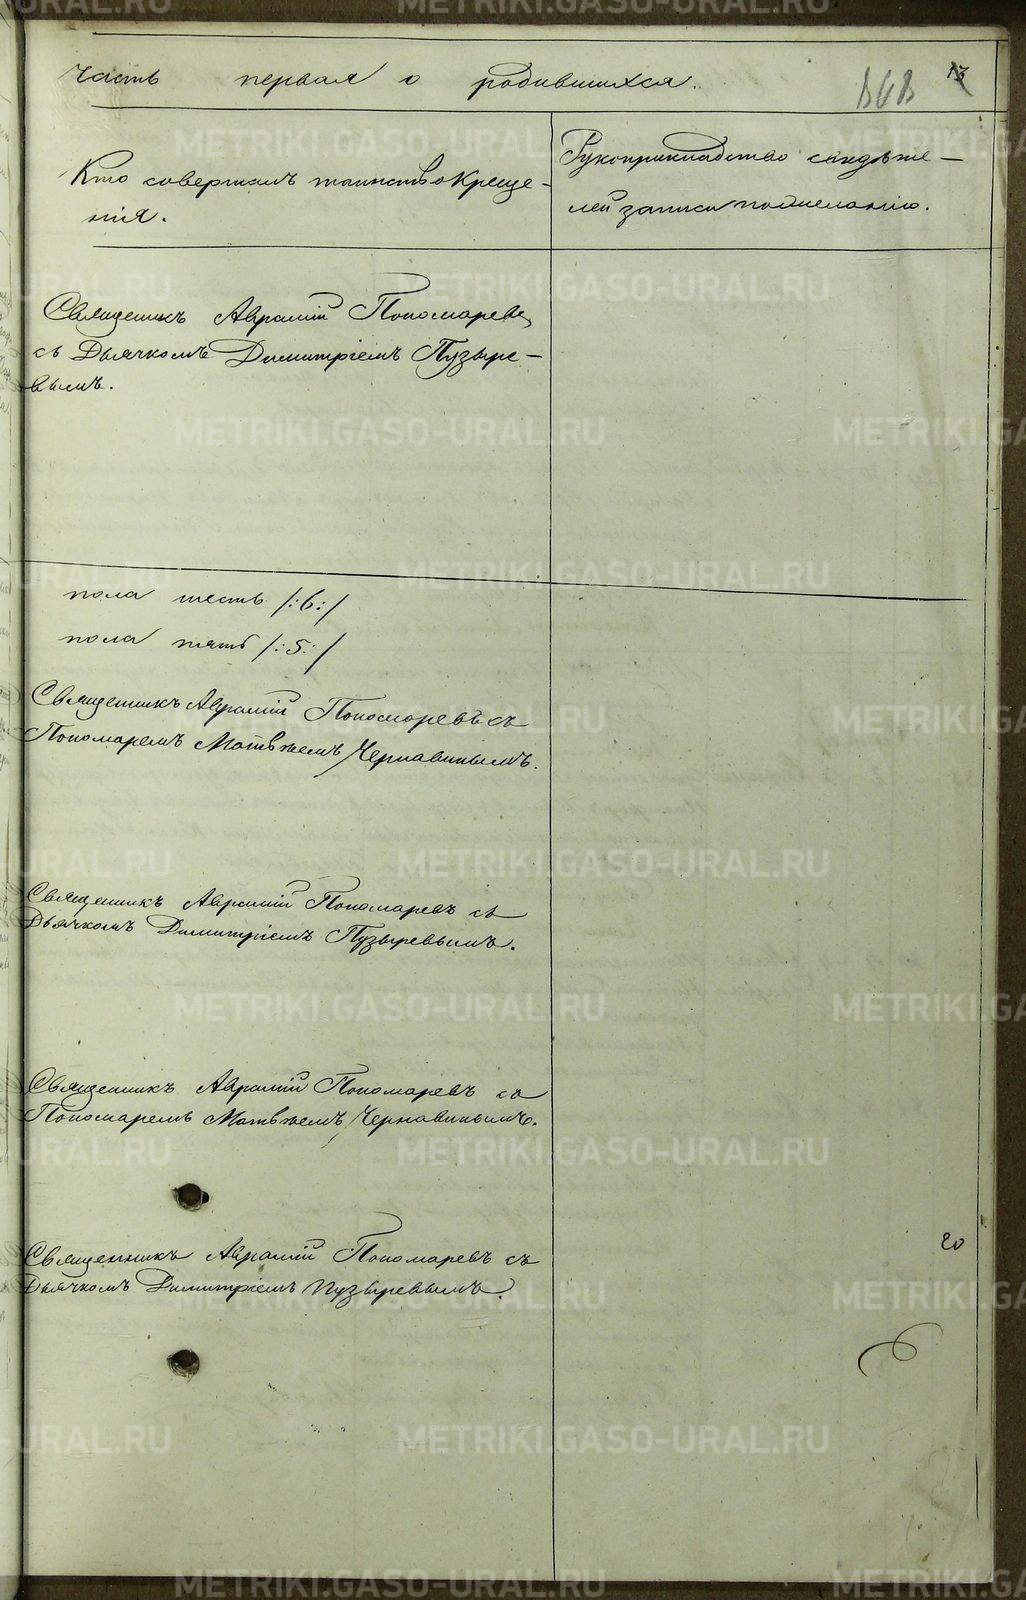 Часть первая о родившихся.
868 13
Кто совершалъ таинство Креще-
нія.
Рукоприкладство свидѣте-
лей записи по желанію.
Священникъ Аврамій Пономаревъ
съ Дьячкомъ Димитріемъ Пузыре-
вымъ.
пола шесть /:6:/
пола пять /:5:/
Священникъ Аврамій Пономаревъ съ
Пономаремъ Матвѣемъ Чернавинымъ.
Священникъ Аврамій Пономаревъ съ
Дьячкомъ Димитріемъ Пузыревымъ.
Священникъ Аврамій Пономаревъ съ
Пономаремъ Матвѣемъ Чернавинымъ.
Священникъ Аврамій Пономаревъ съ
Дьячкомъ Димитріемъ Пузыревымъ.
20
METRIKI.GASO-URAL.RU